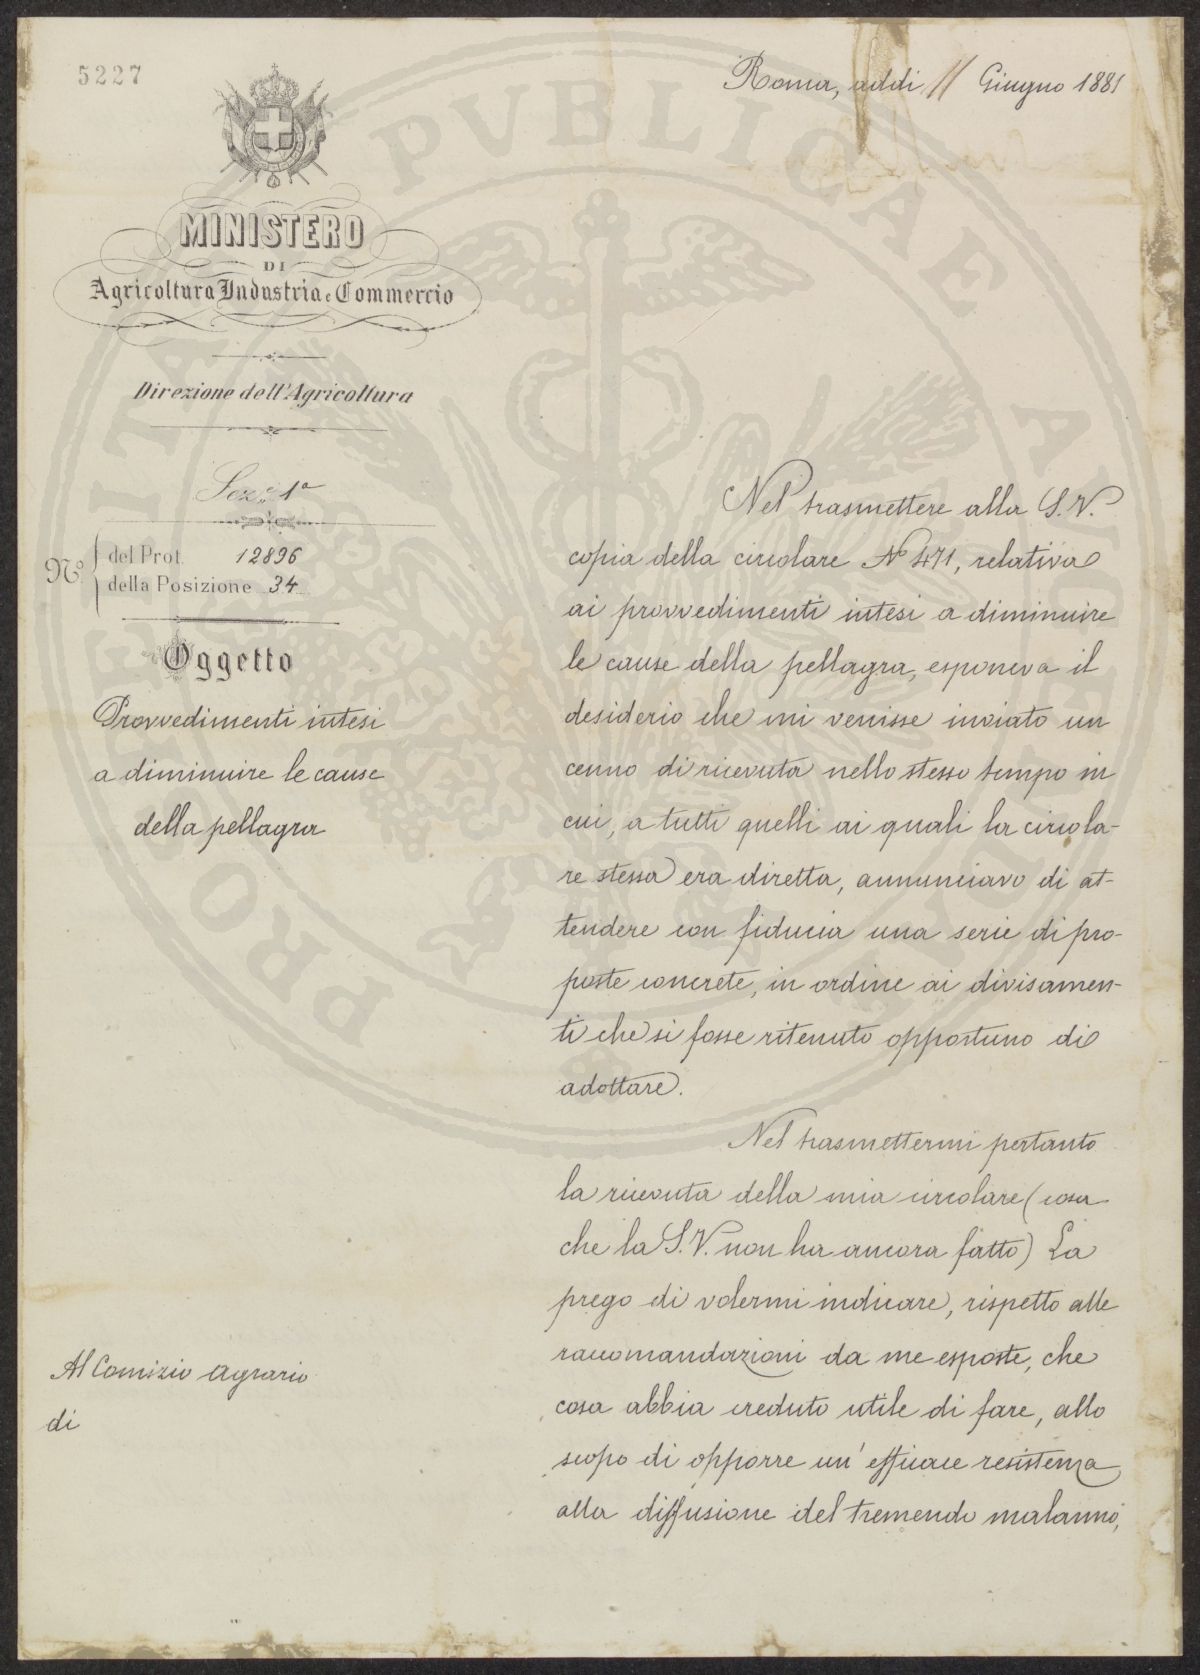 5227
Roma, addì 11 Giugno 1881
MINISTERO
DI
Agricoltura Industria e Commercio
Direzione dell'Agricoltura
Sez.e 1a
No. del Prot. 12896
della Posizione 34
Oggetto
Provvedimenti intesi
a diminuire le cause
della pellagra
Al Comizio Agrario
di
Nel trasmettere alla S.V.
copia della circolare No 471, relativa
ai provvedimenti intesi a diminuire
le cause della pellagra, esponeva il
desiderio che mi venisse inviato un
cenno di ricevuta nello stesso tempo in
cui, a tutti quelli ai quali la circola-
re stessa era diretta, annunciavo di at-
tendere con fiducia una serie di pro-
poste concrete, in ordine ai divisamen-
ti che si fosse ritenuto opportuno di
adottare.
Nel trasmettermi pertanto
la ricevuta della mia circolare (cosa
che la S.V. non ha ancora fatto) La
prego di volermi indicare, rispetto alle
raccomandazioni da me esposte, che
cosa abbia creduto utile di fare, allo
scopo di opporre un' efficace resistenza
alla diffusione del tremendo malanno,
PROPRIETATIS PVBLICAE AD